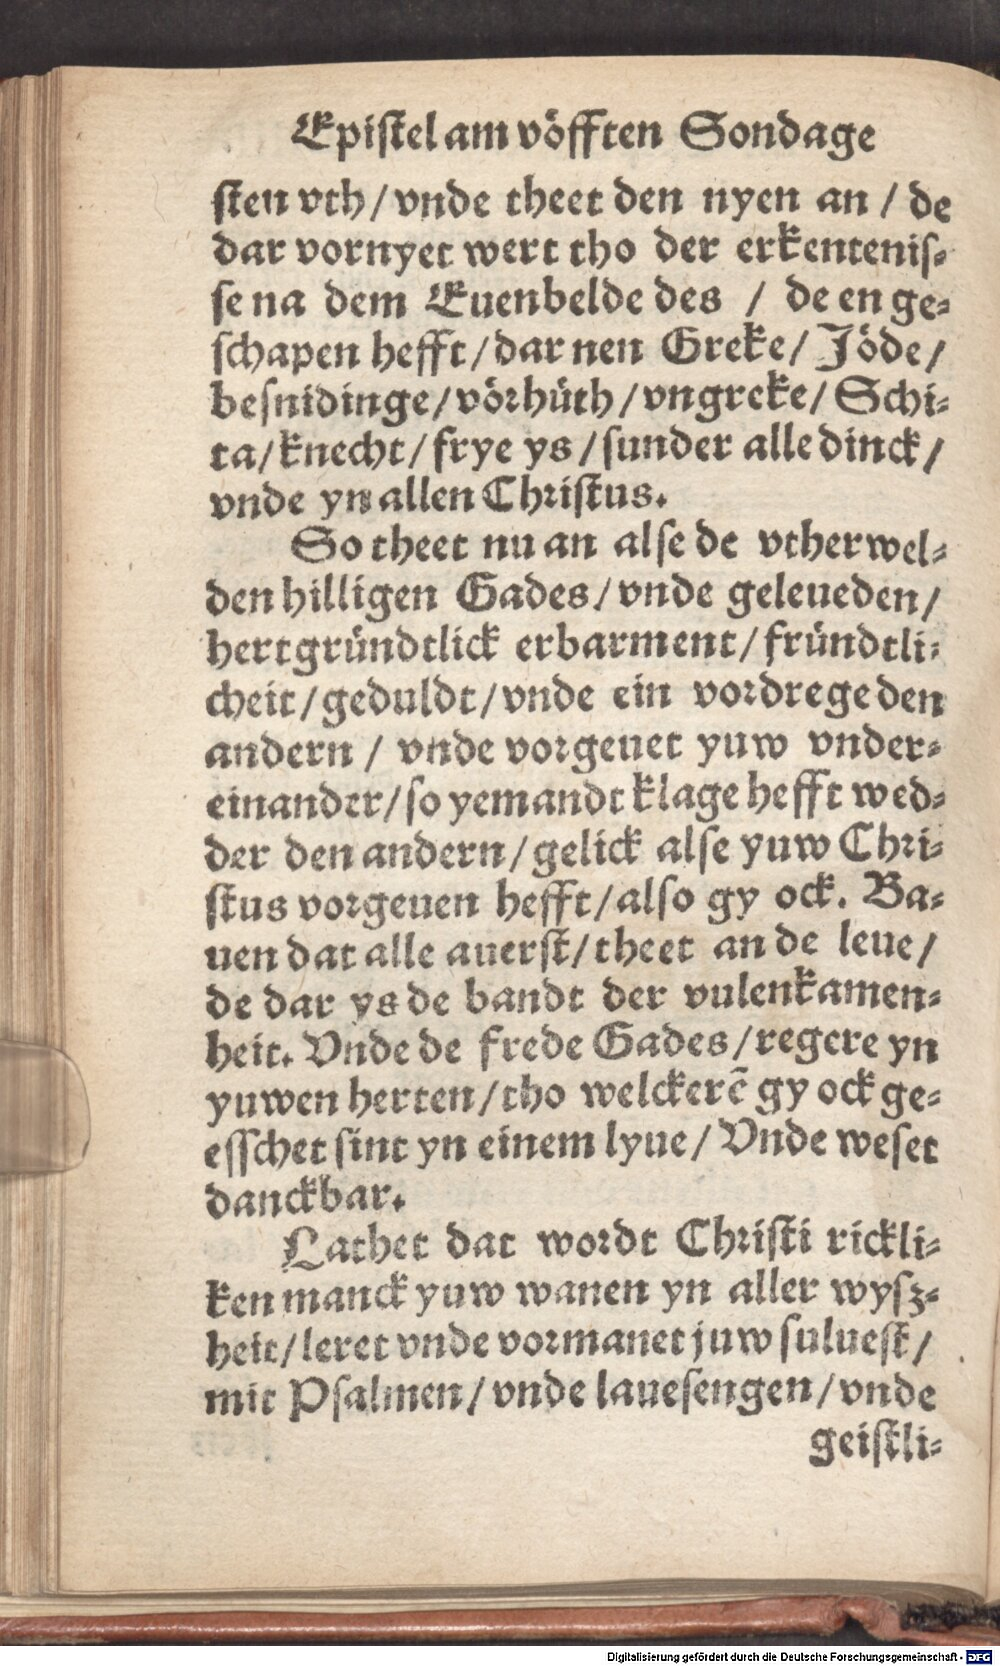 Epistel am vöfften Sondage
sten vth / vnde theet den nyen an / de
dar vornyet wert tho der erkentenis⸗
se na dem Euenbelde des / de en ge⸗
schapen hefft / dar nen Greke / Jöde /
besnidinge / vörhüth / vngreke / Schi⸗
ta / knecht / frye ys / sunder alle dinck /
vnde yn allen Christus.
So theet nu an alse de vtherwel⸗
den hilligen Gades / vnde geleueden /
hertgründtlick erbarment / fründtli⸗
cheit / geduldt / vnde ein vordrege den
andern / vnde vorgeuet yuw vnder⸗
einander / so yemandt klage hefft wed⸗
der den andern / gelick alse yuw Chri⸗
stus vorgeuen hefft / also gy ock. Ba⸗
uen dat alle auerst / theet an de leue /
de dar ys de bandt der vulenkamen⸗
heit. Vnde de frede Gades / regere yn
yuwen herten / tho welckerē gy ock ge⸗
esschet sint yn einem lyue / Vnde weset
danckbar.
Lathet dat wordt Christi rickli⸗
ken manck yuw wanen yn aller wysz⸗
heit / leret vnde vormanet juw suluest /
mit Psalmen / vnde lauesengen / vnde
geistli⸗
Digitalisierung gefördert durch die Deutsche Forschungsgemeinschaft - DFG